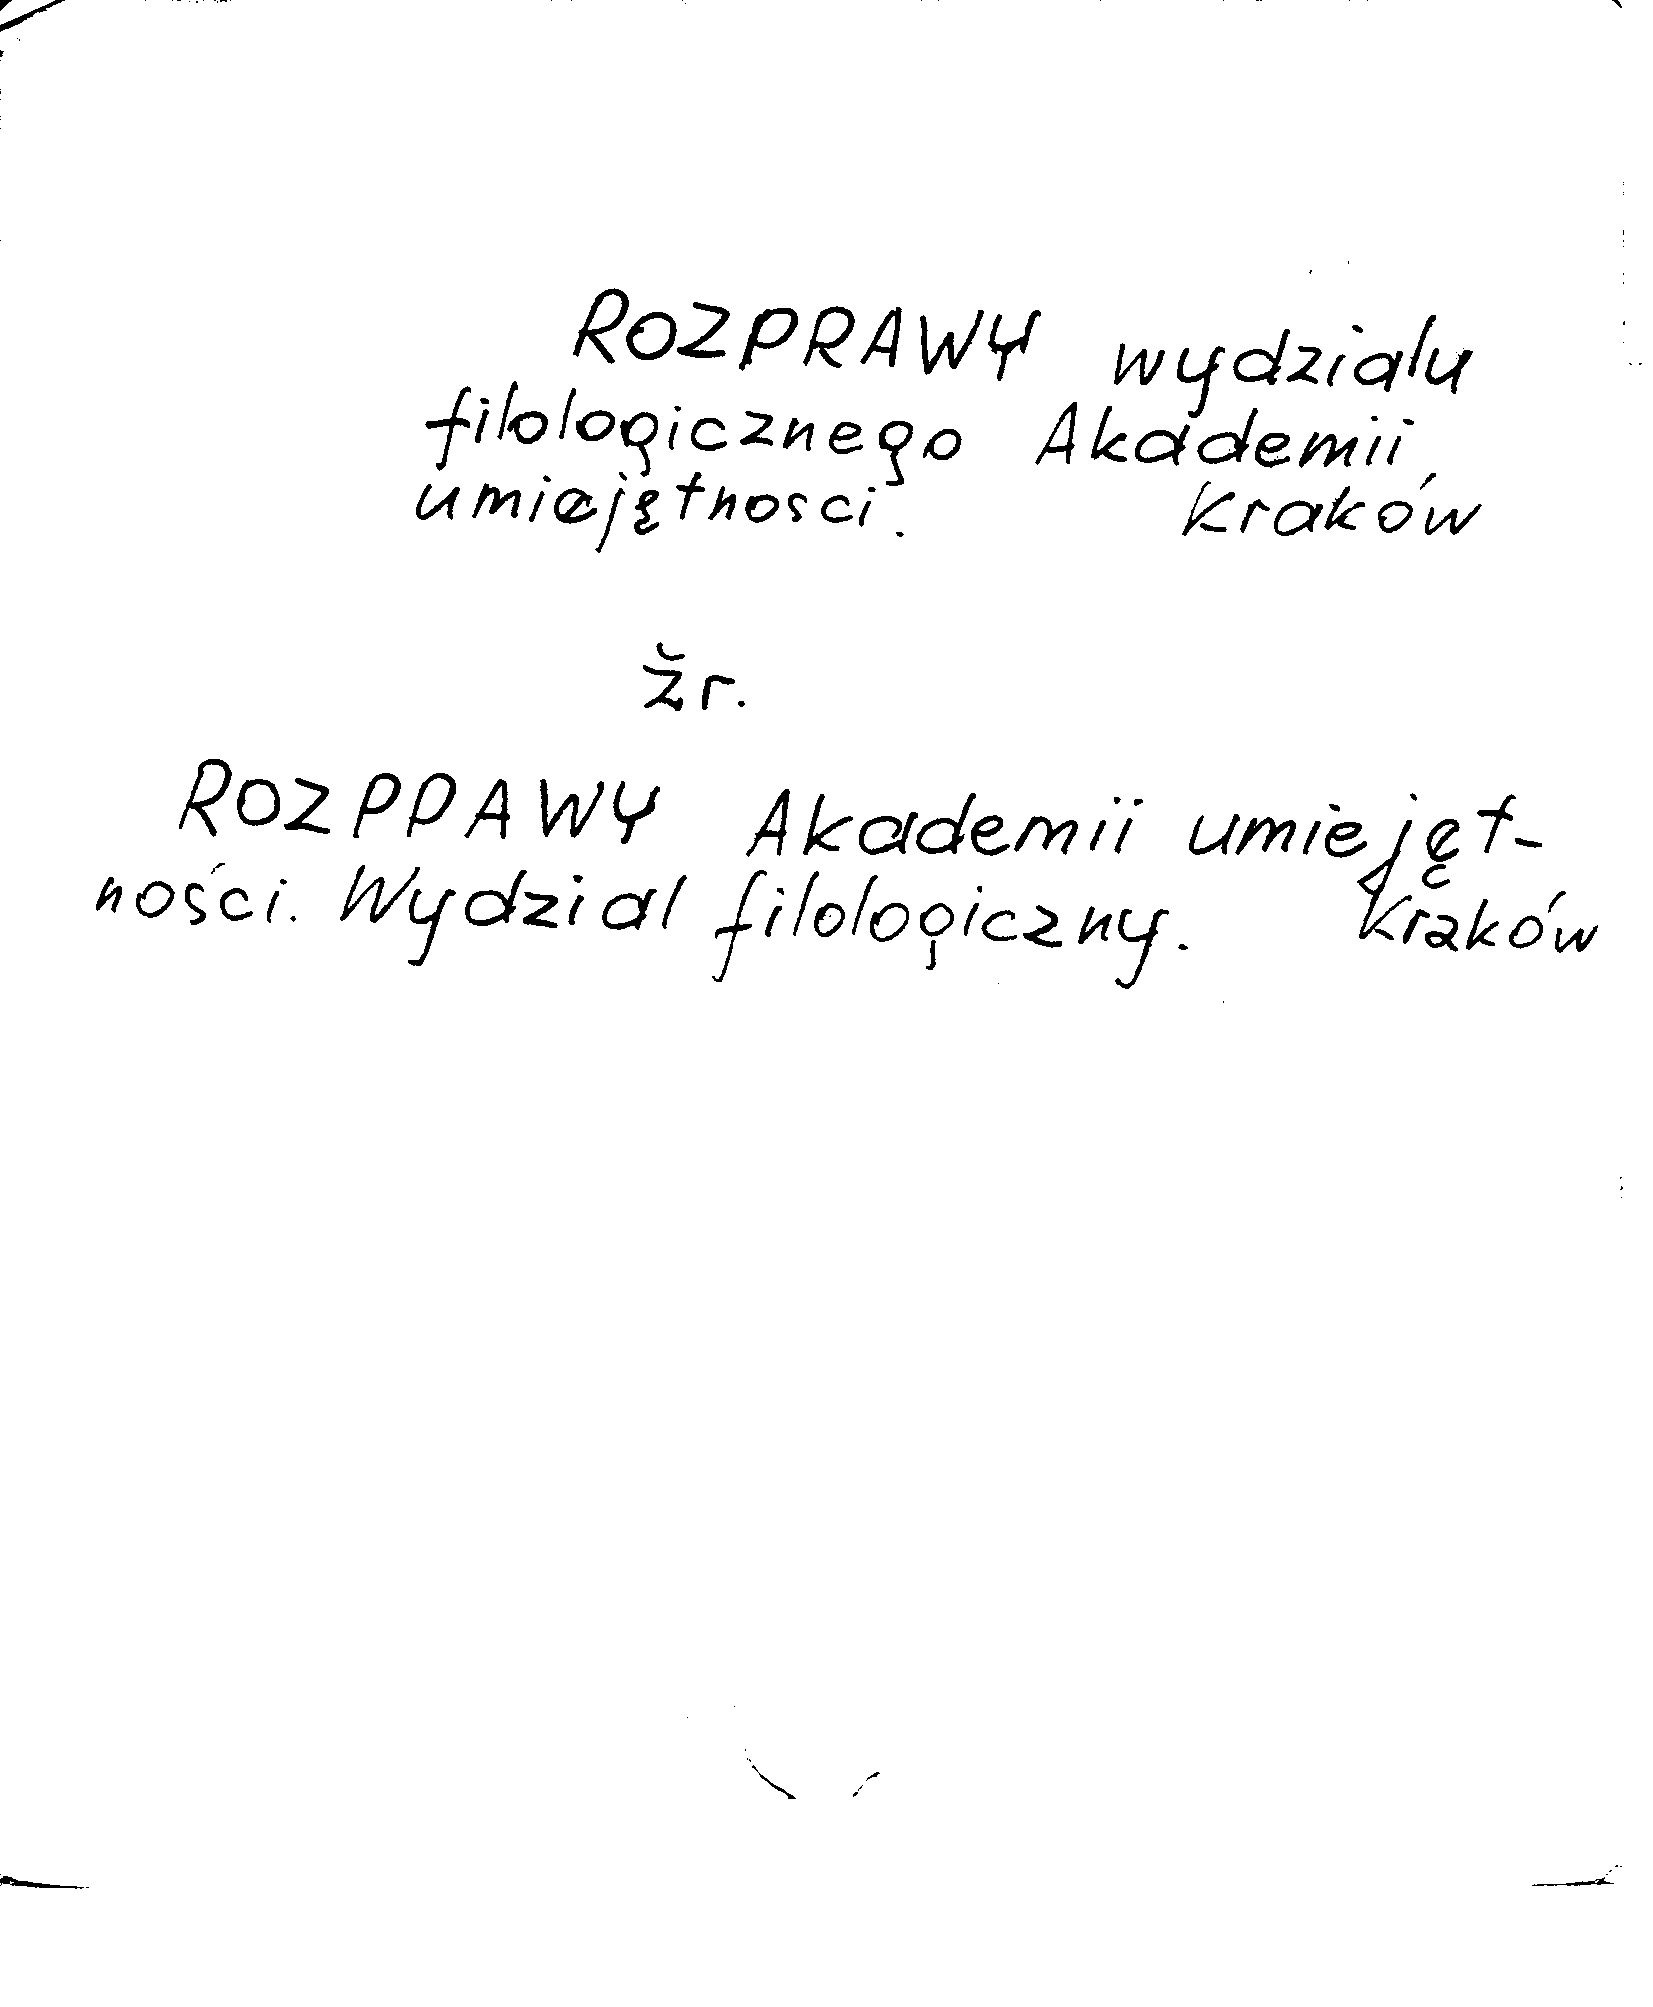 ROZPRAWY wydzialu
filologicznego Akademii
umiejętnosci. Kraków
žr.
ROZPPAWY Akademii umieję̨t-
ności. Wydzial filologiczny. Kraków